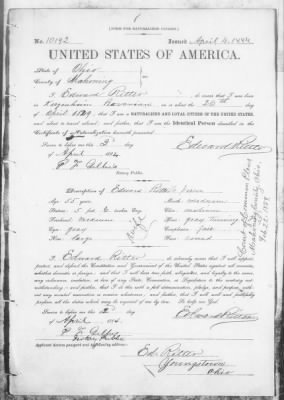 [FORM FOR NATURALIZED CITIZEN.]
No. 10192 Issued April 4, 1884
UNITED STATES OF AMERICA.
State of Ohio
County of Mahoning
I, Edward Ritter, do swear that I was born
in on or about the 20th day
of April 1829, that I am a NATURALIZED AND LOYAL CITIZEN OF THE UNITED STATES,
and about to travel abroad; and further, that I am the Identical Person described in the
Certificate of Naturalization herewith presented.
Sworn to before me this 2d day
of April 1884 Edward Ritter
Notary Public.
Description of Edward Ritter
Age: 55 years Mouth: medium
Stature: 5 feet 6 inches Eng. Chin: medium
Forehead: medium Hair: gray
Eyes: gray Complexion: fair
Nose: large Face: round
I, Edward Ritter, do solemnly swear that I will support,
protect, and defend the Constitution and Government of the United States against all enemies,
whether domestic or foreign; and that I will bear true faith, allegiance, and loyalty to the same,
any ordinance, resolution, or law of any State, Convention, or Legislature to the contrary not-
withstanding; and further, that I do this with a full determination, pledge, and purpose, with-
out any mental reservation or evasion whatsoever; and further, that I will well and faithfully
perform all the duties which may be required of me by law. So help me God!
Sworn to before me this 2d day
of April 1884 Edward Ritter
Notary Public
Applicant desires passport sent to following address:
Ed. Ritter
Youngstown
Ohio
Court of Common Pleas
Mahoning County Ohio.